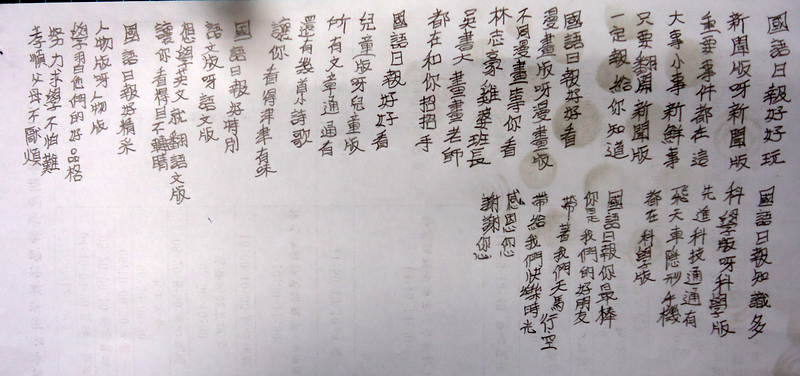 國語日報好好玩
新聞版呀新聞版
重要事件都在這
大事小事新鮮事
只要翻開新聞版
一定報給你知道
國語日報好好看
漫畫版呀漫畫版
不同漫畫等你看
林志豪雞婆班長
吳書大畫畫老師
都在和你招招手
國語日報好好看
兒童版呀兒童版
所有文章通通有
還有幾首小詩歌
讓你看得津津有味
國語日報好特別
語文版呀語文版
想學英文就翻語文版
讓你看得目不轉睛
國語日報好精采
人物版呀人物版
學習他們的好品格
努力求學不怕難
孝順父母不厭煩
國語日報知識多
科學版呀科學版
先進科技通通有
飛天車隱形手機
都在科學版
國語日報你最棒
你是我們的好朋友
帶著我們天馬行空
帶給我們快樂時光
感恩您
謝謝您